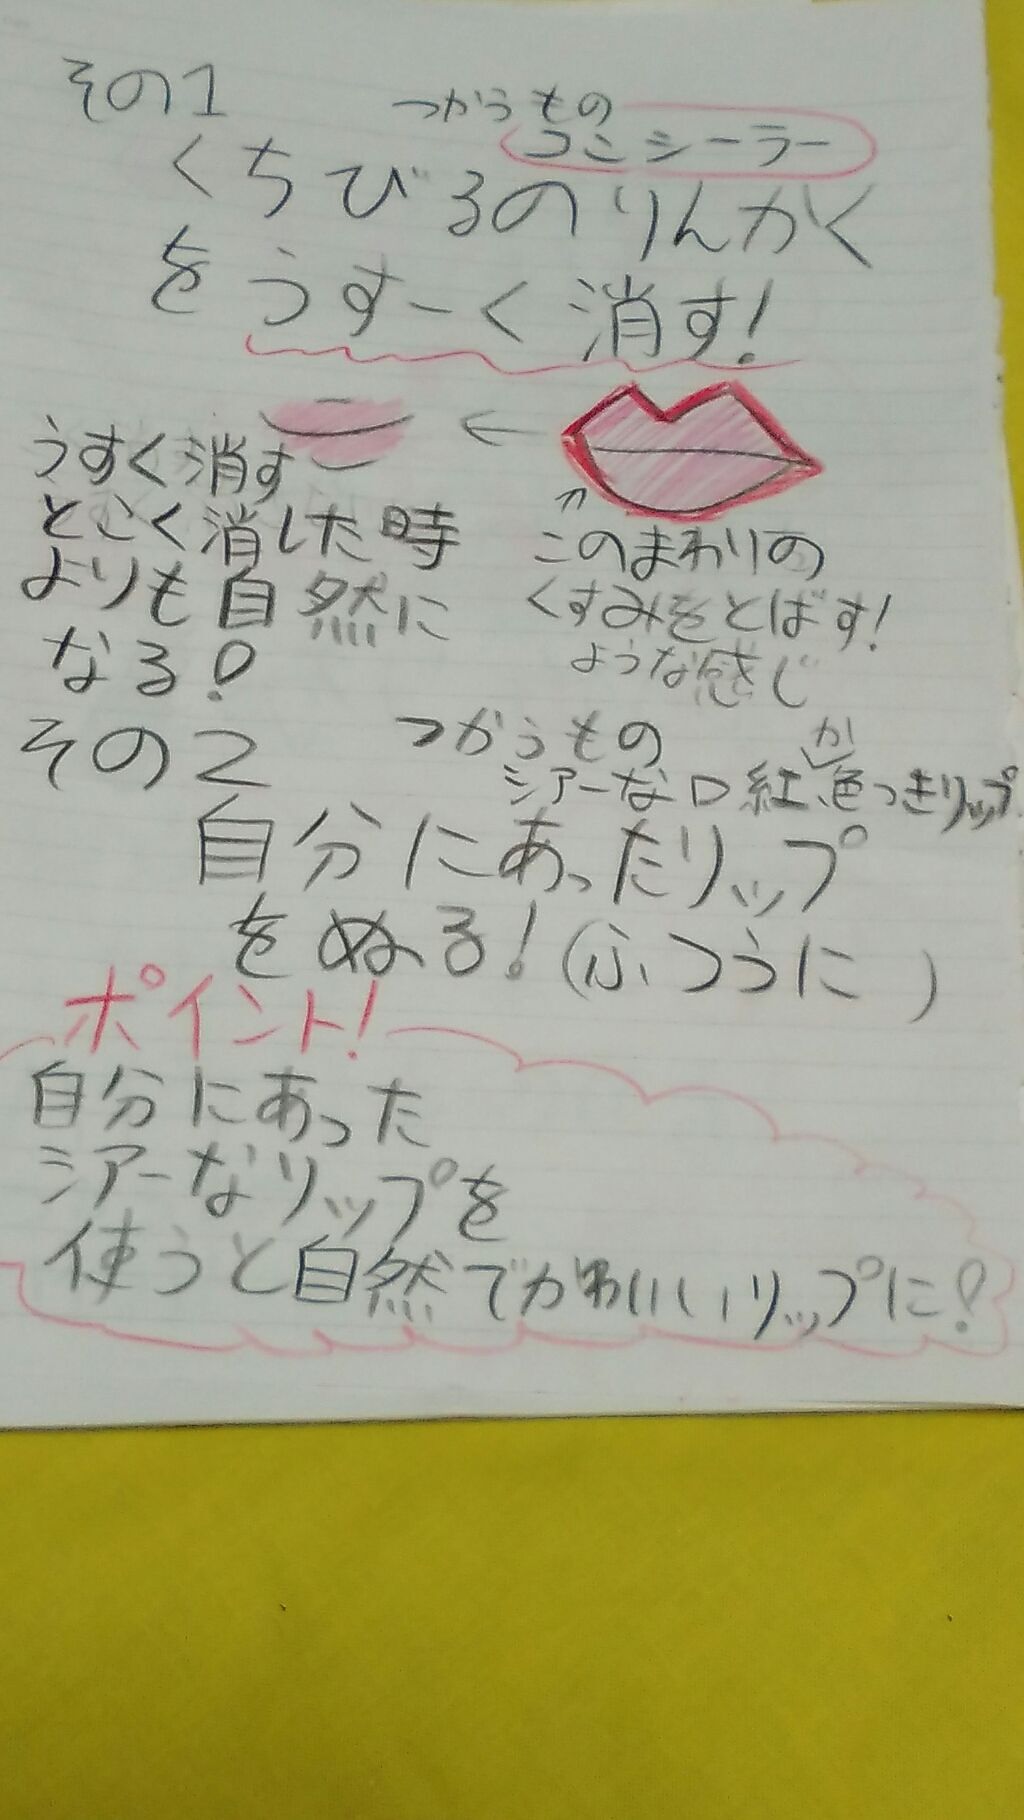 その1
つかうもの
コンシーラー
くちびるのりんかく
をうすーく消す!
うすく消す
とこく消した時
よりも自然に
なる!
このまわりの
くすみをとばす!
ような感じ
その2
つかうもの
シアーな口紅か色つきリップ
自分にあったリップ
をぬる!(ふつうに)
ポイント!
自分にあった
シアーなリップを
使うと自然でかわいいリップに!